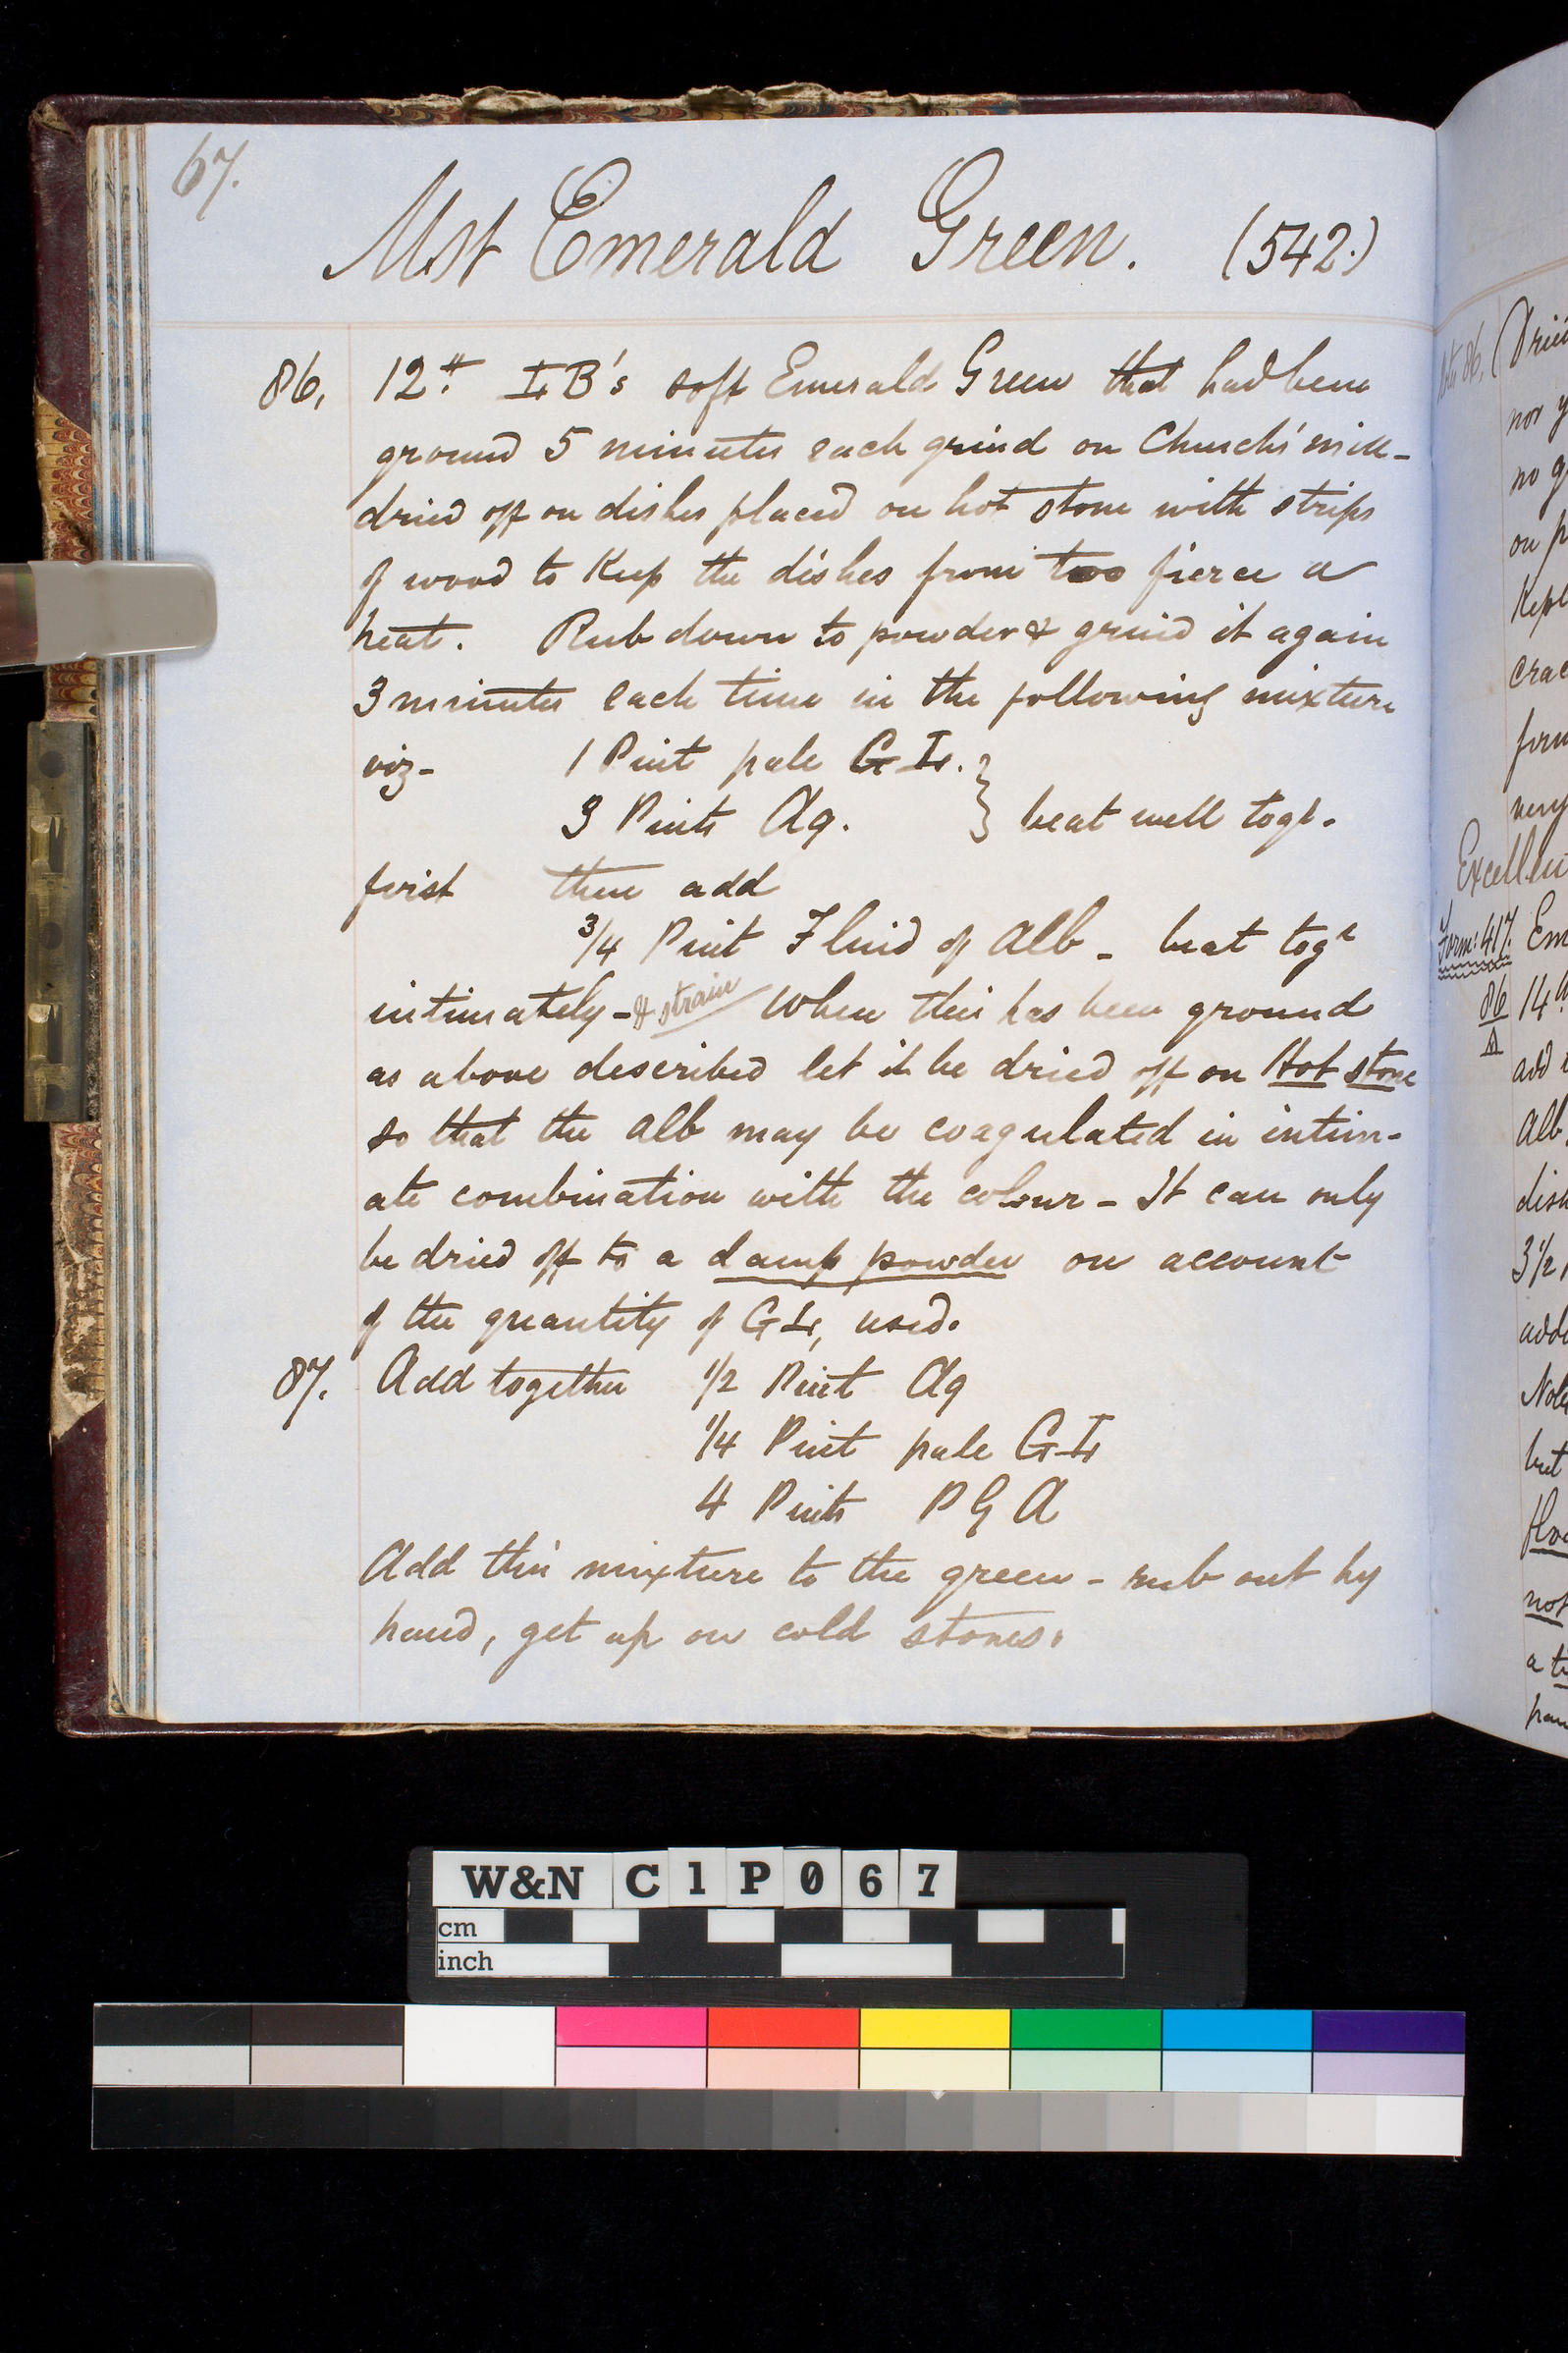 67.
Mst Emerald Green. (542.)
86, 12 lb IB's soft Emerald Green that had been
ground 5 minutes each grind on Church's mill-
dried off on dishes placed on hot stone with strips
of wood to Keep the dishes from too fierce a
heat. Rub down to powder & grind it again
3 minutes each time in the following mixture
viz- 1 Pint pale GL. }
3 Pints Aq. } beat well togr.
first then add
3/4 Pint Fluid of Alb - beat togr
intimately - & strain When this has been ground
as above described let it be dried off on Hot stone
so that the Alb may be coagulated in intim-
ate combination with the colour - It can only
be dried off to a damp powder on account
of the quantity of GL, used.
87. Add together 1/2 Pint Aq
1/4 Pint pale GL
4 Pints PGA
Add this mixture to the green - rub out by
hand, get up on cold stones.
nor
no
on
add
Alb
3 1/2
but
not
a
very
Excellen
Form: 417.
86
A
14
W&N C1P067
cm
inch